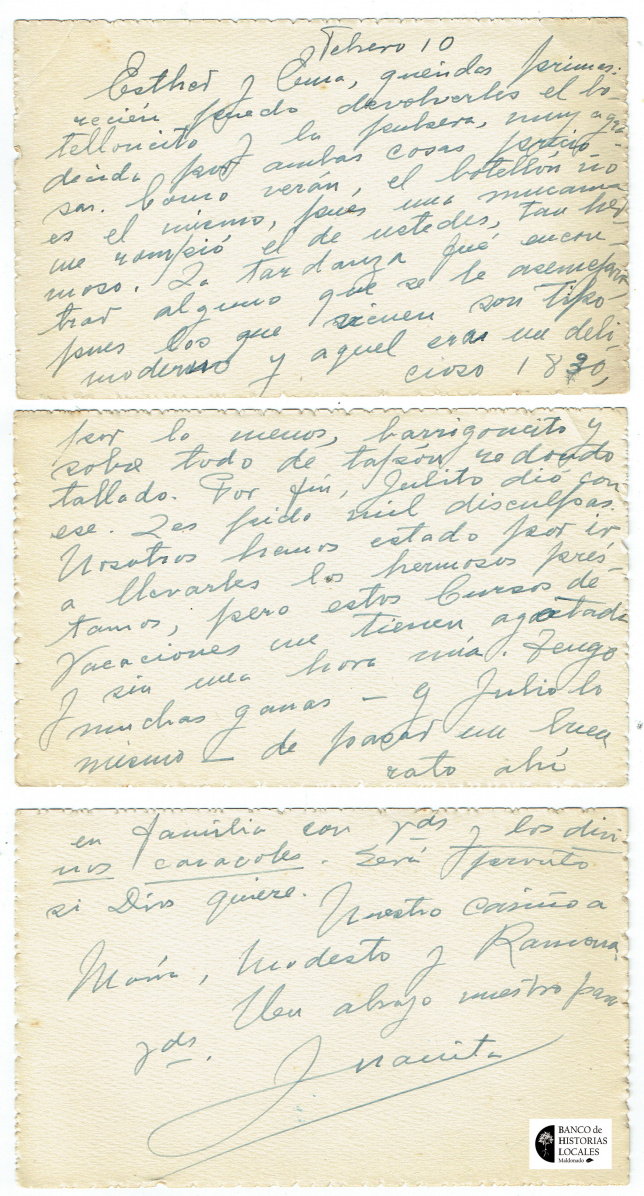 Febrero 10
Esther y Ema, queridas primas:
recién puedo devolverles el bo-
telloncito y la pulsera, muy agra
decida por ambas cosas precio-
sas. Como verán, el botellón no
es el mismo, pues una mucama
me rompió el de ustedes, tan her
moso. La tardanza fué encon-
trar alguno que se le asemejara
pues los que vienen son tipo
moderno y aquel era un deli-
cioso 1830,
por lo menos, barrigoncito y
sobre todo de tapón redondo
tallado. Por fin, Julito dió con
ese. Les pido mil disculpas.
Nosotros hemos estado por ir
a llevarles los hermosos prés-
tamos, pero estos Cursos de
Vacaciones me tienen agotada
y sin una hora mía. Tengo
muchas ganas – y Julio lo
mismo – de pasar un buen
rato ahí
en familia con yds y los divi-
nos caracoles. Será pronto
si Dios quiere.
Nuestro cariño a
María, Modesto y Ramona
Un abrazo nuestro para
yds.
Juanita
BANCO de
HISTORIAS
LOCALES
Maldonado